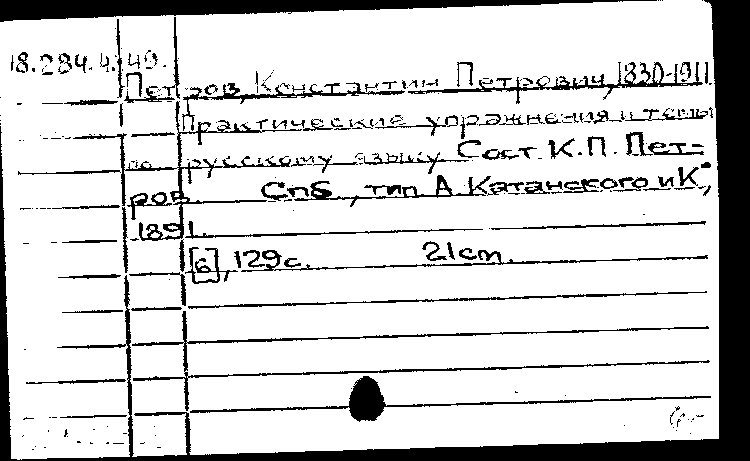 18.284.4.49.
Петров, Константин Петрович, 1830-1911
Практические упражнения и темы
по русскому языку. Сост. К.П. Пет-
ров. Спб, тип. А. Катанского и К°,
1891.
[6], 129 с. 21 cm.